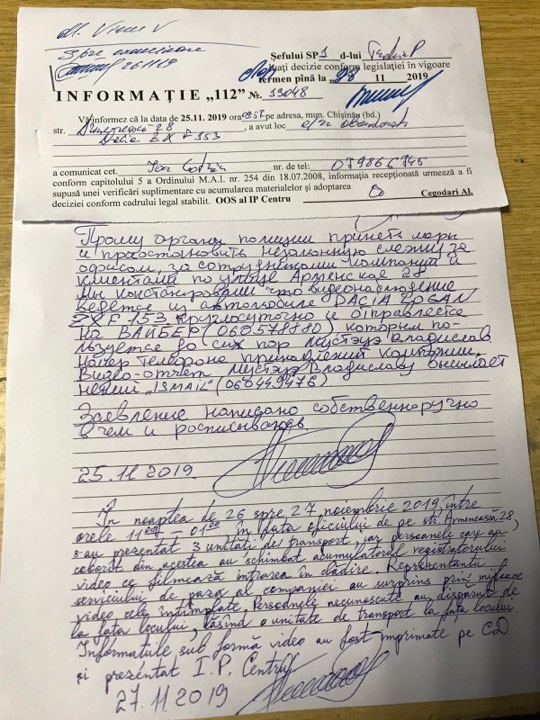 Spre examinare
26.11.19
Șefului SP1 d-lui
luați decizie conform legislației în vigoare
termen pînă la „28 11 2019
INFORMAȚIE „112” №. 19048
Vă informez că la data de 25.11. 2019 ora pe adresa, mun. Chișinău (bd.)
str. 28, a avut loc
Dacia ZXF 153
a comunicat cet. Ion nr. de tel:
conform capitolului 5 a Ordinului M.A.I. nr. 254 din 18.07.2008, informația recepționată urmează a fi
supusă unei verificări suplimentare cu acumularea materialelor și adoptarea
deciziei conform cadrului legal stabilit. OOS al IP Centru Cegodari Al.
Прошу органы полиции принять меры
и приостановить незаконную слежку за
офисом, за сотрудниками компании и
клиентами по улице Арменскае 28
Мы констатировали что видеонаблюдение
ведется из автомобиля DACIA LOGAN
ZXF 153 круглосуточно и отправляется
на ВАЙБЕР (060578880) которым по-
льзуется до сих пор Мустяцэ Владислав
номер телефона принадлежит компании.
Видео-отчет Мустяцэ Владиславу высылает
некий „ISMAIL" (060449476)
Заявление написано собственноручно
в чем и росписываюсь.
25.11 2019
În noaptea de 26 spre 27 noiembrie 2019, între
orele 11 – 01 în fața oficiului de pe str. Armenească, 28,
s-au prezentat 3 unități de transport, iar persoanele care au
coborît din acestea au schimbat acumulatorul registratorului
video ce filmează intrarea în clădire. Reprezentanții
serviciului de pază al companiei au surprins prin mijloace
video cele întîmplate. Persoanele necunoscute au dispărut de
la fața locului, lăsînd o unitate de transport la fața locului.
Informațiile sub formă video au fost imprimate pe CD
și prezentat I.P. Centru
27.11 2019